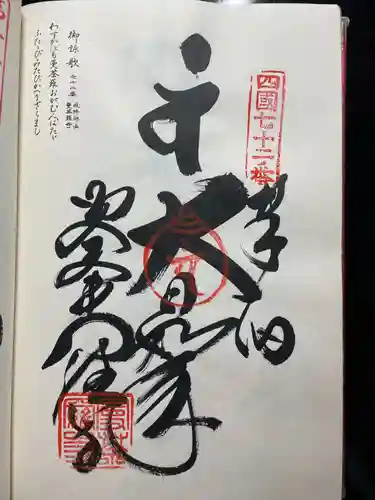 四國七十二番
奉拝
大日如来
曼荼羅寺
御詠歌
七十二番
曼荼羅寺
わずかにも曼荼羅おがむ人はただ
ふたたびみたびかへらざらまし